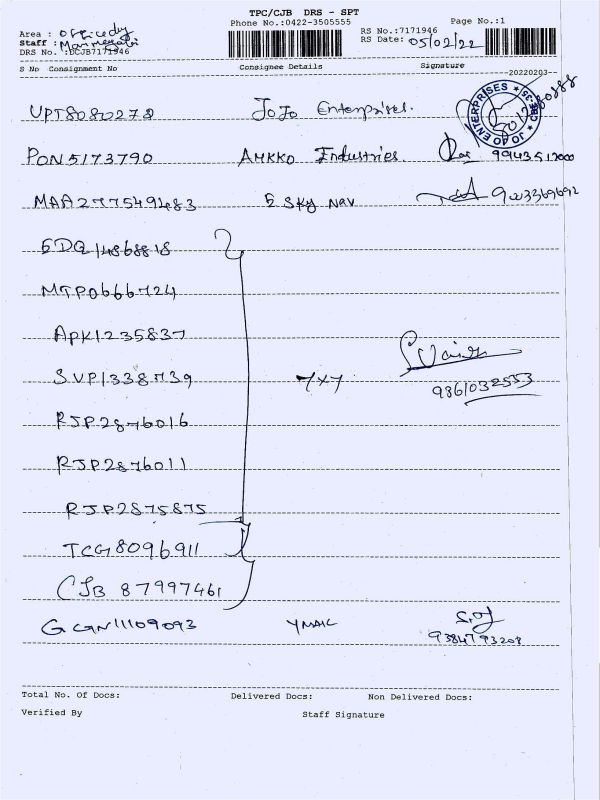 TPC/CJB DRS - SPT
Phone No.:0422-3505555
Page No.:1
Area : Officedy
Staff :
DRS No. :DCJB7171946
RS No.:7171946
RS Date: 05/02/22
S No Consignment No Consignee Details Signature
--20220203--
UPT8080272 JoJo Enterprises.
JOJO ENTERPRISES CBE-35
PON5173790 AMKKO Industries. 9943512000
MAA277549483 E Sky Nav 9003369692
EDQ1486818
MTP0666724
APK1235837
SVP1338739 7x7
9361032553
RJP2876016
RJP2876011
RJP2875875
TCG8096911
CJB 87997461
GGN11109093 YMAIL
9384793208
Total No. Of Docs: Delivered Docs: Non Delivered Docs:
Verified By Staff Signature